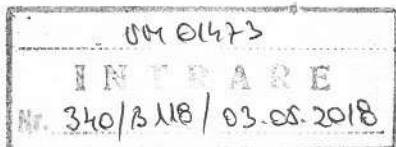 UM 01473
INTRARE
Nr. 340/B118/03.05.2018